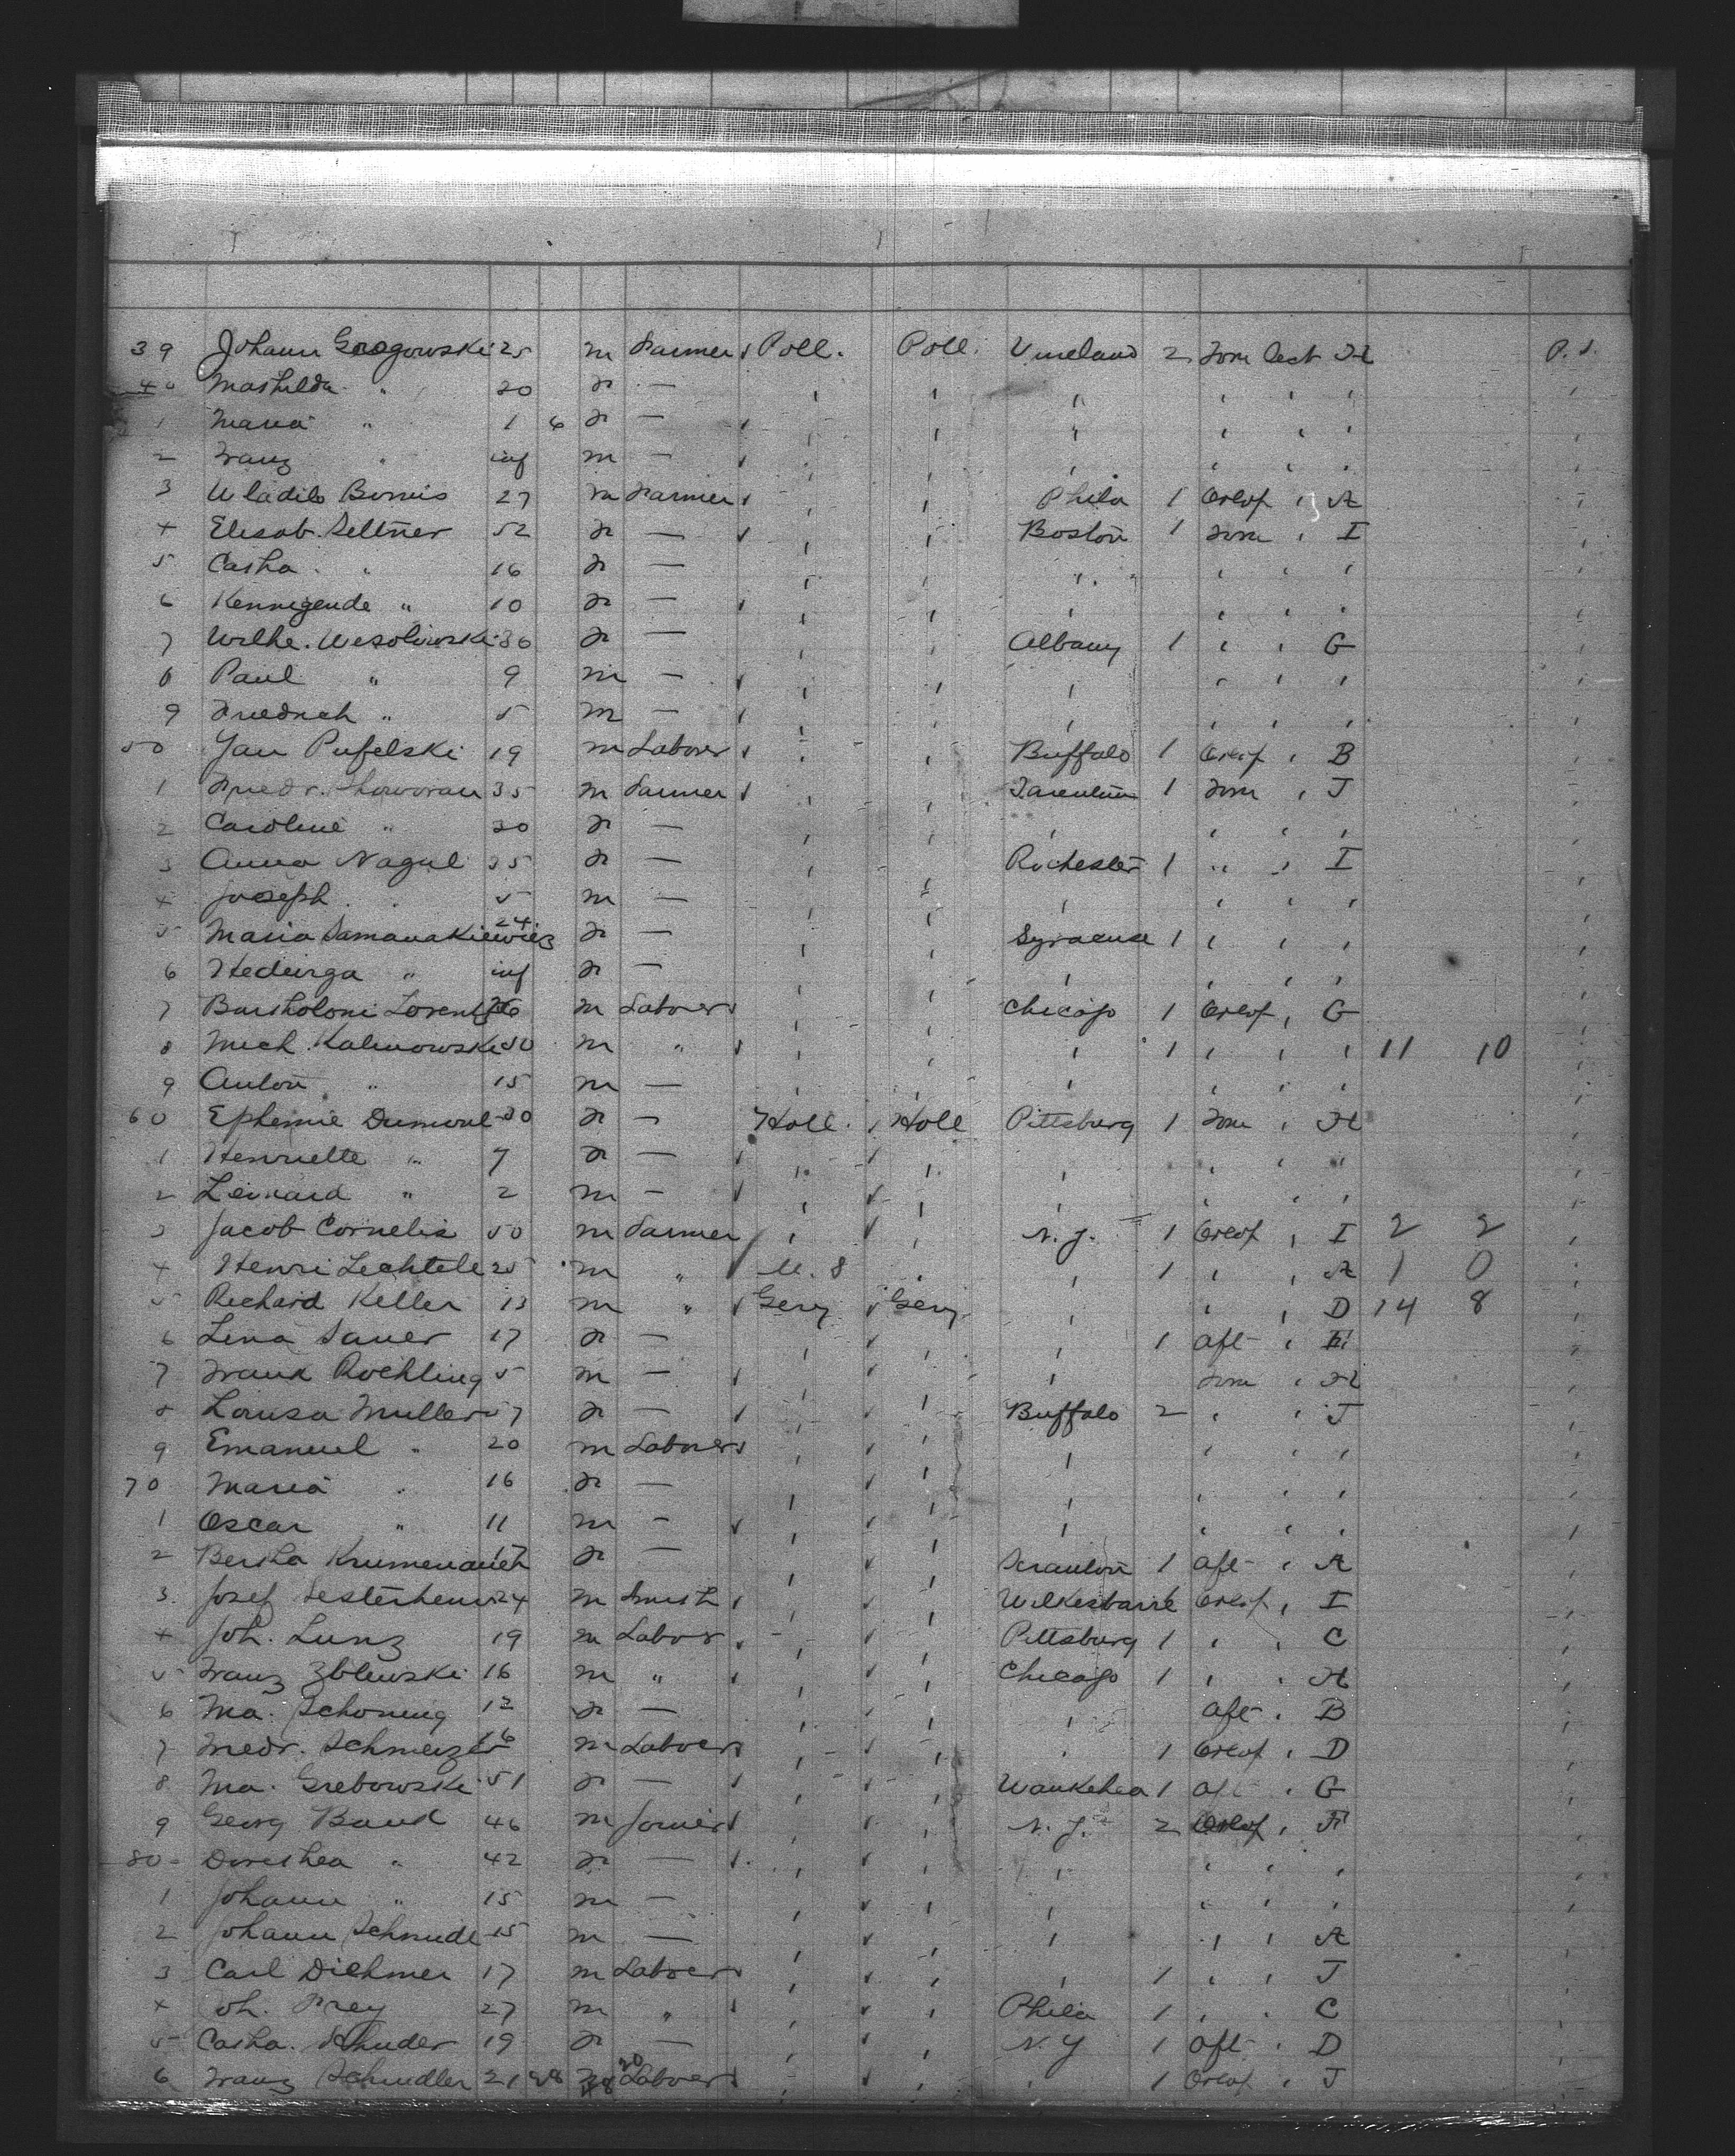 39 Johann Grogowski 25 m Farmer Poll. Poll. Vineland 2 Forw Cect H P.S.
40 Mathilda " 20 F — " " " " " "
1 Maria " 1 6 F — " " " " " "
2 Franz " inf m — " " " " " "
3 Wladils 27 m Farmer " " Phila 1 Orlop " A
4 Elisab. Seltner 52 F — " " Boston 1 Forw " I
5 Catha. " 16 F — " " " " " "
6 Kennegende " 10 F — " " " " " "
7 Wilhe. Wesolowski 36 F — " " Albany 1 " " G
8 Paul " 9 m — " " " " " "
9 Friedrich " 5 m — " " " " " "
50 Jan Pufelski 19 m Laborer " " Buffalo 1 Orlop " B
1 Friedr. 35 m Farmer " " Tarentum 1 Forw " J
2 Caroline " 20 F — " " " " " "
3 Anna Nagul F — " " Rochester 1 " " I
4 Joseph " 5 m — " " " " " "
5 Maria Samanakiewicz 24 F — " " Syracuse 1 " " "
6 Hedwiga " inf F — " " " " " "
7 Bartholomi Lorentz m Laborer " " Chicago 1 Orlop " G
8 Mich. Kalinowski 50 m " " " " 1 " " " 11 10
9 Anton " 15 m — " " " " " "
60 Ephemie Dumoul 30 F — Holl. Holl Pittsburg 1 Forw " H
1 Henriette " 7 F — " " " " " "
2 Leonard " 2 m — " " " " " "
3 Jacob Cornelis 50 m Farmer " " N.J. 1 Orlop " I 2 2
4 Henri Lechtele 25 m " U.S " " 1 " " A 1 0
5 Richard Keller 13 m " Gery Gery " " " D 14 8
6 Lena Sauer 17 F — " " " 1 Aft "
7 Frank Rochling 5 m — " " " Forw " H
8 Lousa Muller 57 F — " " Buffalo 2 " " J
9 Emanuel " 20 m Laborer " " " " " "
70 Maria " 16 F — " " " " " "
1 Oscar " 11 m — " " " " " "
2 Bertha Krumenauch 17 F — " " Scranton 1 Aft " A
3 Josef Sesterhenn 24 m Smith " " Wilkesbarre Orlop " I
4 Joh. Lunz 19 m Labor " " Pittsburg 1 " " C
5 Franz Zblewski 16 m " " " Chicago 1 " " H
6 Ma. Schoning 12 F — " " " Aft " B
7 Friedr. Schmeizer 16 m Laborer " " " 1 Orlop " D
8 Ma. Grebowski 51 F — " " Waukesha 1 Aft " G
9 Georg Baud 46 m Joiner " " N.J. 2 Orlop " F
80 Dorothea " 42 F — " " " " " "
1 Johann " 15 m — " " " " " "
2 Johann Schmidl 15 m — " " " " " A
3 Carl Diehmer 17 m Laborer " " " 1 " " J
4 Joh. Frey 27 m " " " Phila 1 " " C
5 Catha. Schuder 19 F — " " N.Y 1 Aft " D
6 Franz Schindler 21 28 20 Laborer " " " 1 Orlop " J